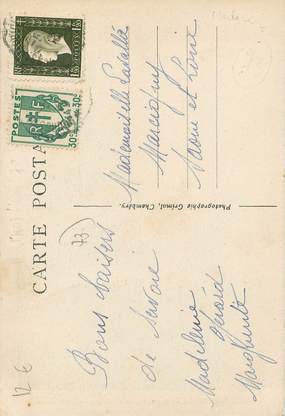 CARTE POSTALE
Bons baisers
de Savoie
Madeleine
Gérard
Marguerite
Photographie Grimal, Chambéry.
Mademoiselle Lavallée
Maine et Loire
POSTES
RF
30c
30c
1F50
(73)
12 €